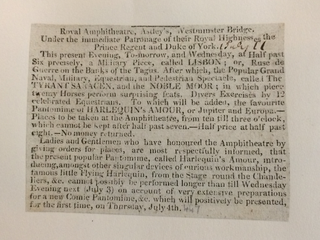 Royal Amphitheatre, Astley's, Westminster Bridge.
Under the immediate Patronage of their Royal Highnesses the
Prince Regent and Duke of York.
This present Evening, To-morrow, and Wednesday, at Half past
Six precisely, a Military Piece, called LISBON; or, Ruse de
Guerre on the Banks of the Tagus. After which, the Popular Grand
Naval, Military, Equestrian, and Pedestrian Spectacle, called The
TYRANT SARACEN, and the NOBLE MOOR; in which piece
Horses perform surprising feats. Divers Exercises by 12
celebrated Equestrians. To which will be added, the favourite
Pantomime of HARLEQUIN'S AMOUR, or Jupiter and Europa.—
Places to be taken at the Amphitheatre, from ten till three o'clock,
which cannot be kept after half past seven.—Half price at half past
eight.—No money returned.
Ladies and Gentlemen who have honoured the Amphitheatre by
giving orders for places, are most respectfully informed, that
the present popular Pantomime, called Harlequin's Amour, intro-
ducing, amongst other singular devices of curious workmanship, the
famous little Flying Harlequin, from the Stage round the Chande-
liers, &c. cannot possibly be performed longer than till Wednesday
Evening next (July 3) on account of very extensive preparations
for a new Comic Pantomime, &c. which will positively be presented,
for the first time, on Thursday, July 4th.